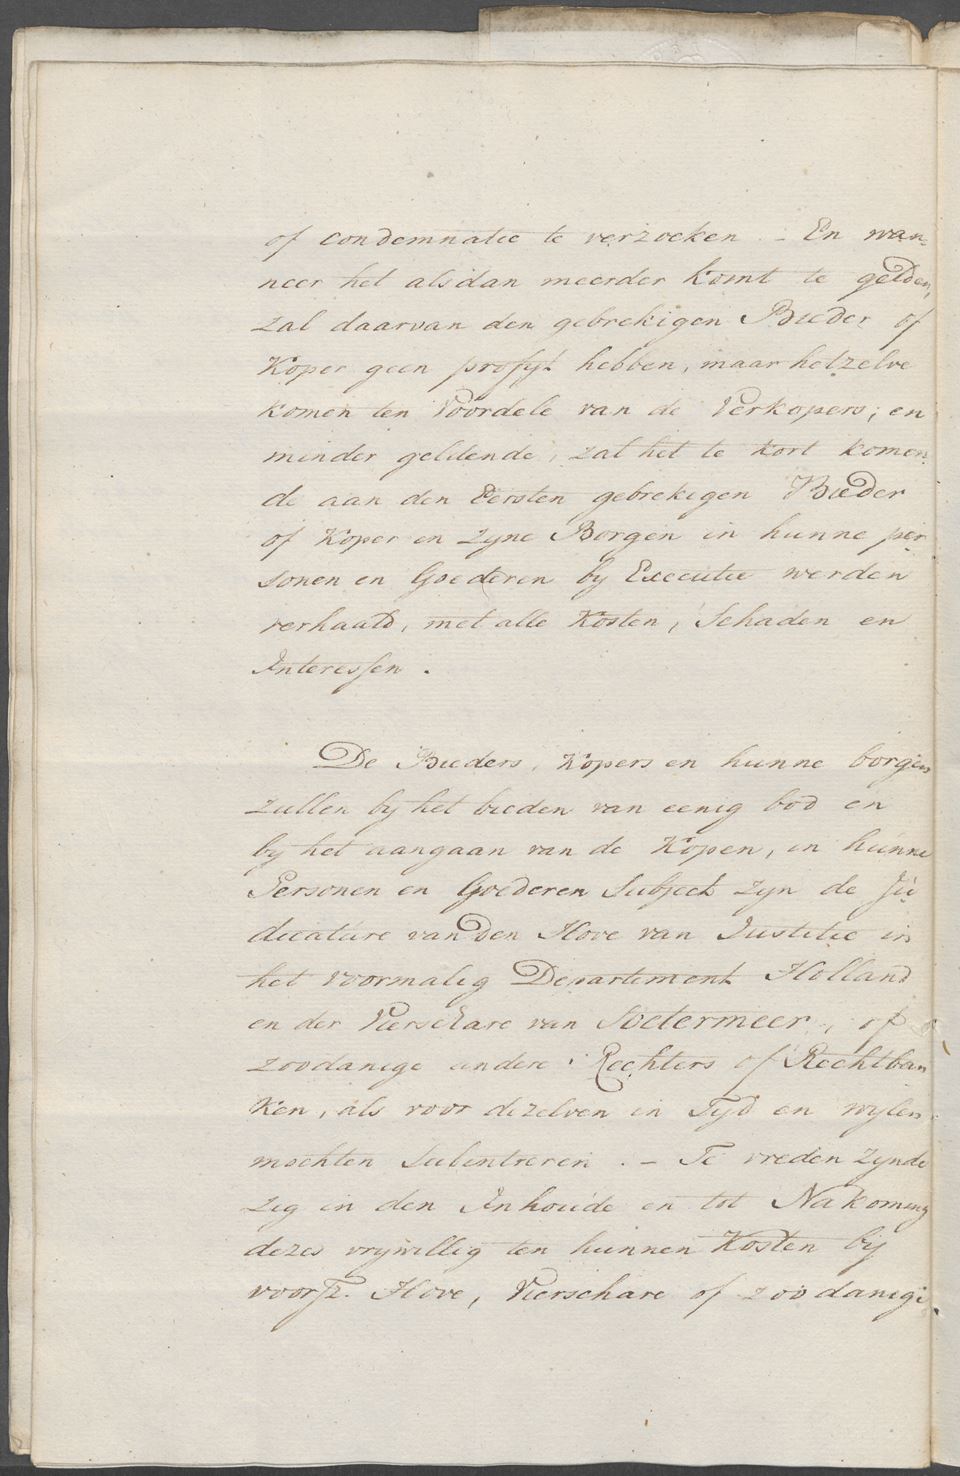 of condemnatie te verzoeken. – En wan-
neer het alsdan meerder komt te gelden,
zal daarvan den gebrekigen Bieder of
Koper geen profijt hebben, maar hetzelve
komen ten Voordele van de Verkopers; en
minder geldende, zal het te kort komen-
de aan den Eersten gebrekigen Bieder
of Koper en zyne Borgen in hunne per
sonen en Goederen by Executie werden
verhaald, met alle Kosten, Schaden en
Interessen.
De Bieders, Kopers en hunne borgen
zullen by het bieden van eenig bod en
by het aangaan van de Kopen, in hunne
Personen en Goederen Subject zyn de Ju
dicature van den Hove van Justitie in
het voormalig Departement Holland
en der Vierschare van Soetermeer, of
zoodanige andere Rechters of Rechtban
ken, als voor dezelven in Tyd en wylen
mochten Subintreren. – Te vreden zynde
zig in den Inhoude en tot Nakoming
dezes vrywillig ten hunnen Kosten by
voorsz. Hove, Vierschare of zoodanige